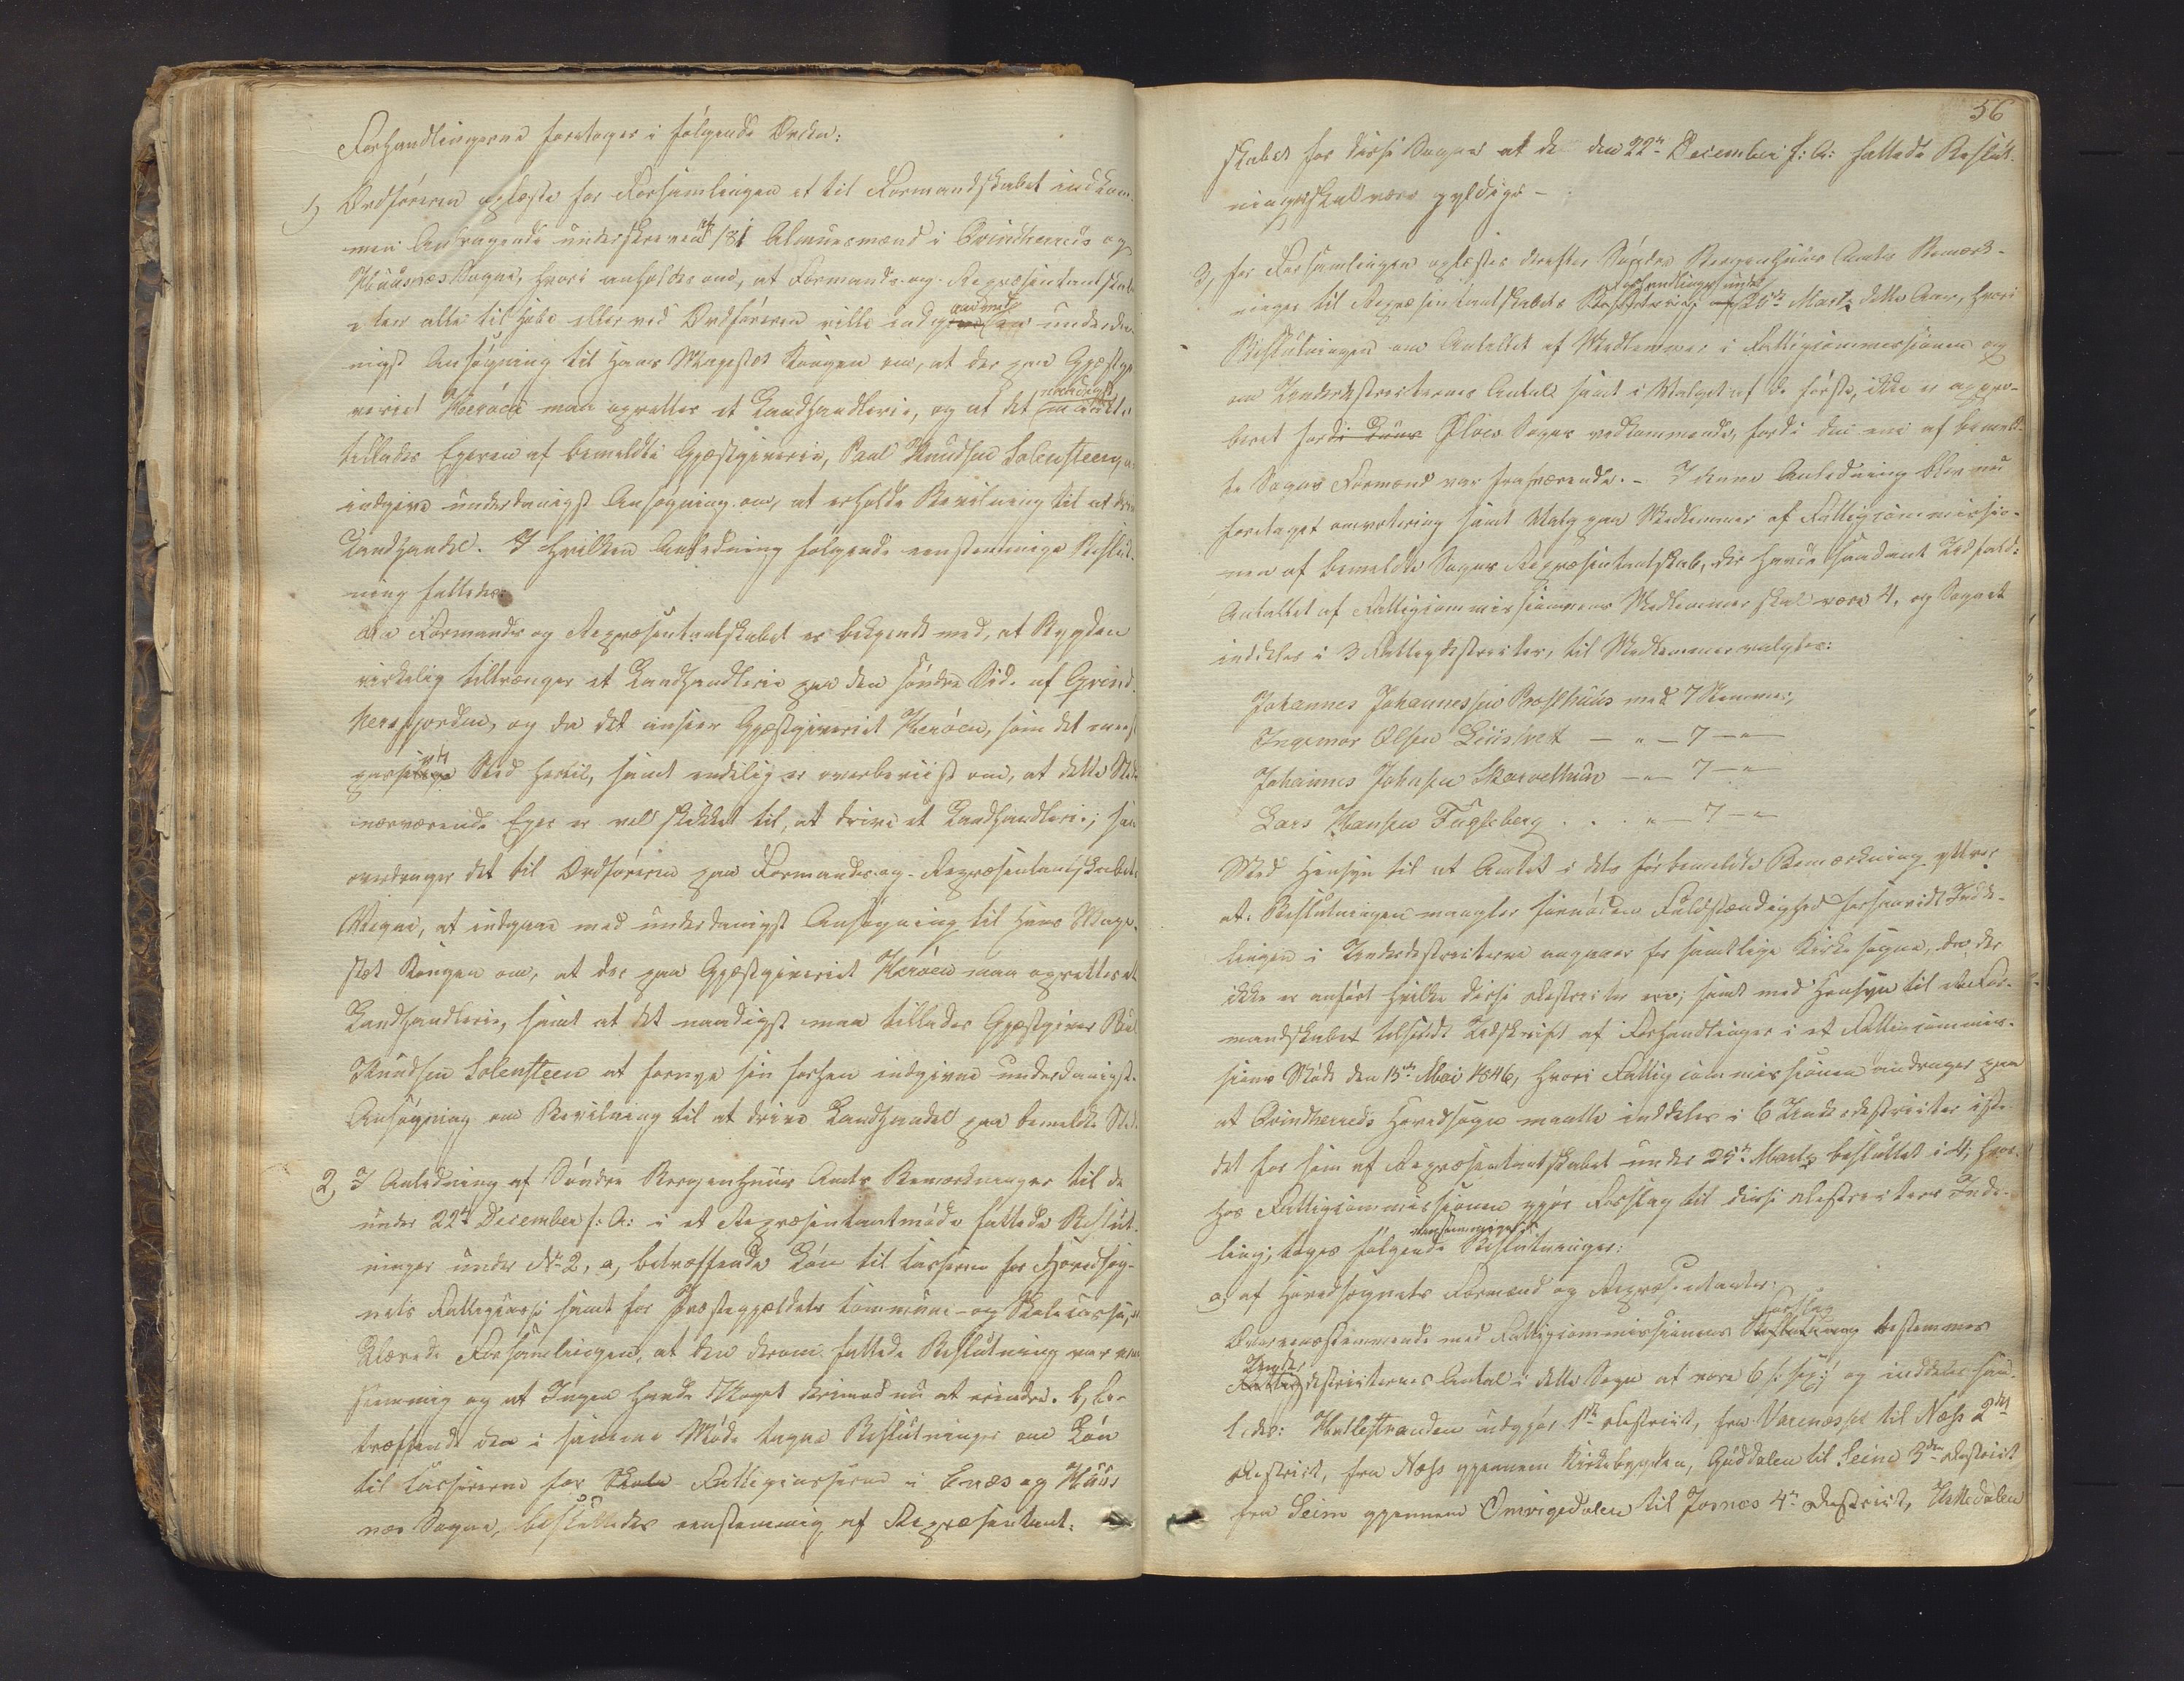 Forhandlingerne foretoges i følgende Orden:
1) Ordføreren oplæste for Forsamlingen et til Formandskabet indkom-
men Andragende underskrevet af 181 Almuesmænd i Qvindherreds og
Huusnæs Sogne, hvori anholdes om, at Formands- og Repræsentantskabet
enten alle til Hobe eller ved Ordføreren ville indgaae med underda-
nigst Ansøgning til Hans Majestæt Kongen om, at der paa Gjæstgi-
veriet Herøen maa oprettes et Landhandlerie, og at det naadigst maatte
tillades Eieren af bemeldte Gjæstgiverie, Paul Knudsen Solensteen, at
indgive underdanigst Ansøgning om, at erholde Bevilning til at drive
Landhandel. I hvilken Anledning følgende eenstemmige Beslut-
ning fattedes:
Da Formands og Repræsentantskabet er bekjendt med, at Bygden
virkelig tiltrænger et Landhandlerie paa den søndre Side af Qvind-
herefjorden, og da det anseer Gjæstgiveriet Herøen, som det meest
passende Sted hertil, samt endelig er overbeviist om, at dette Steds
nærværende Eier er vel skikket til, at drive et Landhandleri; saa
overdrages det til Ordføreren paa Formands- og Repræsentantskabets
Vegne, at indgaae med underdanigst Ansøgning til Hans Maje-
stæt Kongen om, at der paa Gjæstgiveriet Herøen maa oprettes et
Landhandlerie, samt at det naadigst maa tillades Gjæstgiver Paul
Knudsen Solensteen at fornye sin forhen indgivne underdanigst
Ansøgning om Bevilning til at drive Landhandel paa bemeldte Sted.
2) I Anledning af Søndre Bergenhuus Amts Bemærkninger til de
under 22de December f: A: i et Repræsentantmøde fattede Beslut-
ninger under No 2, a, betræffende Løn til Casserer for Hovedsog-
nets Fattigcasse samt for Præstegjældets Commune- og Skolecasse, er-
klærede Forsamlingen, at den derom fattede Beslutning var een-
stemmig og at Ingen havde Noget derimod nu at erindre. b, be-
træffende den i samme Møde tagne Beslutninger om Løn
til Cassererne for Skole Fattigcasserne i Enæs og Huus-
næs Sogne, besluttedes eenstemmig af Repræsentant-
56
skabet for disse Sogne at de den 22de December f: A: fattede Beslut-
ninger skal være gyldige –
3, for Forsamlingen oplæstes derefter Søndre Bergenhuus Amts Bemærk-
ninger til Repræsentantskabets Forhandlinger under 25de Marts dette Aar, hvori
Beslutningen om Antallet af Medlemmer i Fattigcommissionen og
om Underdistricternes Antal samt i Valget af de første, ikke er appro-
beret fordi Ølves Sogn vedkommende, fordi den ene af bemeld-
te Sogns Formænd var fraværende. – I denne Anledning blev nu
foretaget omvotering samt Valg paa Medlemmer af Fattigcommissio-
nen af bemeldte Sogns Repræsentantskab, der havde saadant Udfald:
Antallet af Fattigcommissionens Medlemmer skal være 4, og Sognet
inddeles i 3 Fattigdistricter, til Medlemmer valgtes:
Johannes Johannessen Prosthuus med 7 Stemmer,
Ingemar Olsen – " – 7 – " –
Johannes Johnsen – " – 7 – " –
Lars Hansen Fugleberg . . . " – 7 – " –
Med Hensyn til at Amtet i dets førbemeldte Bemærkning yttrer
at Beslutningen mangler fornøden Fuldstændighed forsaavidt Indde-
lingen i Underdistricterne angaaer for samtlige Kirkesogne, da der
ikke er anført hvilke disse Districter ere; samt med Hensyn til et For-
mandskabet tilsendt Udskrift af Forhandlinger i et Fattigcommis-
sions Møde den 15de Mai 1846, hvori Fattigcommissionen andrager paa
at Qvindherreds Hovedsogn maatte inddeles i 6 Underdistricter iste-
det for som af Repræsentantskabet under 25de Marts besluttet i 4, hvor-
hos Fattigcommissionen gjør Forslag til disse Districters Indde-
ling, toges følgende eenstemmige Beslutninger:
a) af Hovedsognets Formænd og Repræsentanter:
Overeensstemmende med Fattigcommissionens Forslag bestemmes
Underdistricternes Antal i dette Sogn at være 6 /: sex :/ og inddeles saa-
ledes: Hattestranden udgjør 1ste District, fra til Næss 2det
District, fra Næss gjennem Kirkebygden, Guddalen til Seim 3die District
fra Seim gjennem Omvigedalen til 4de District, Uttedalen